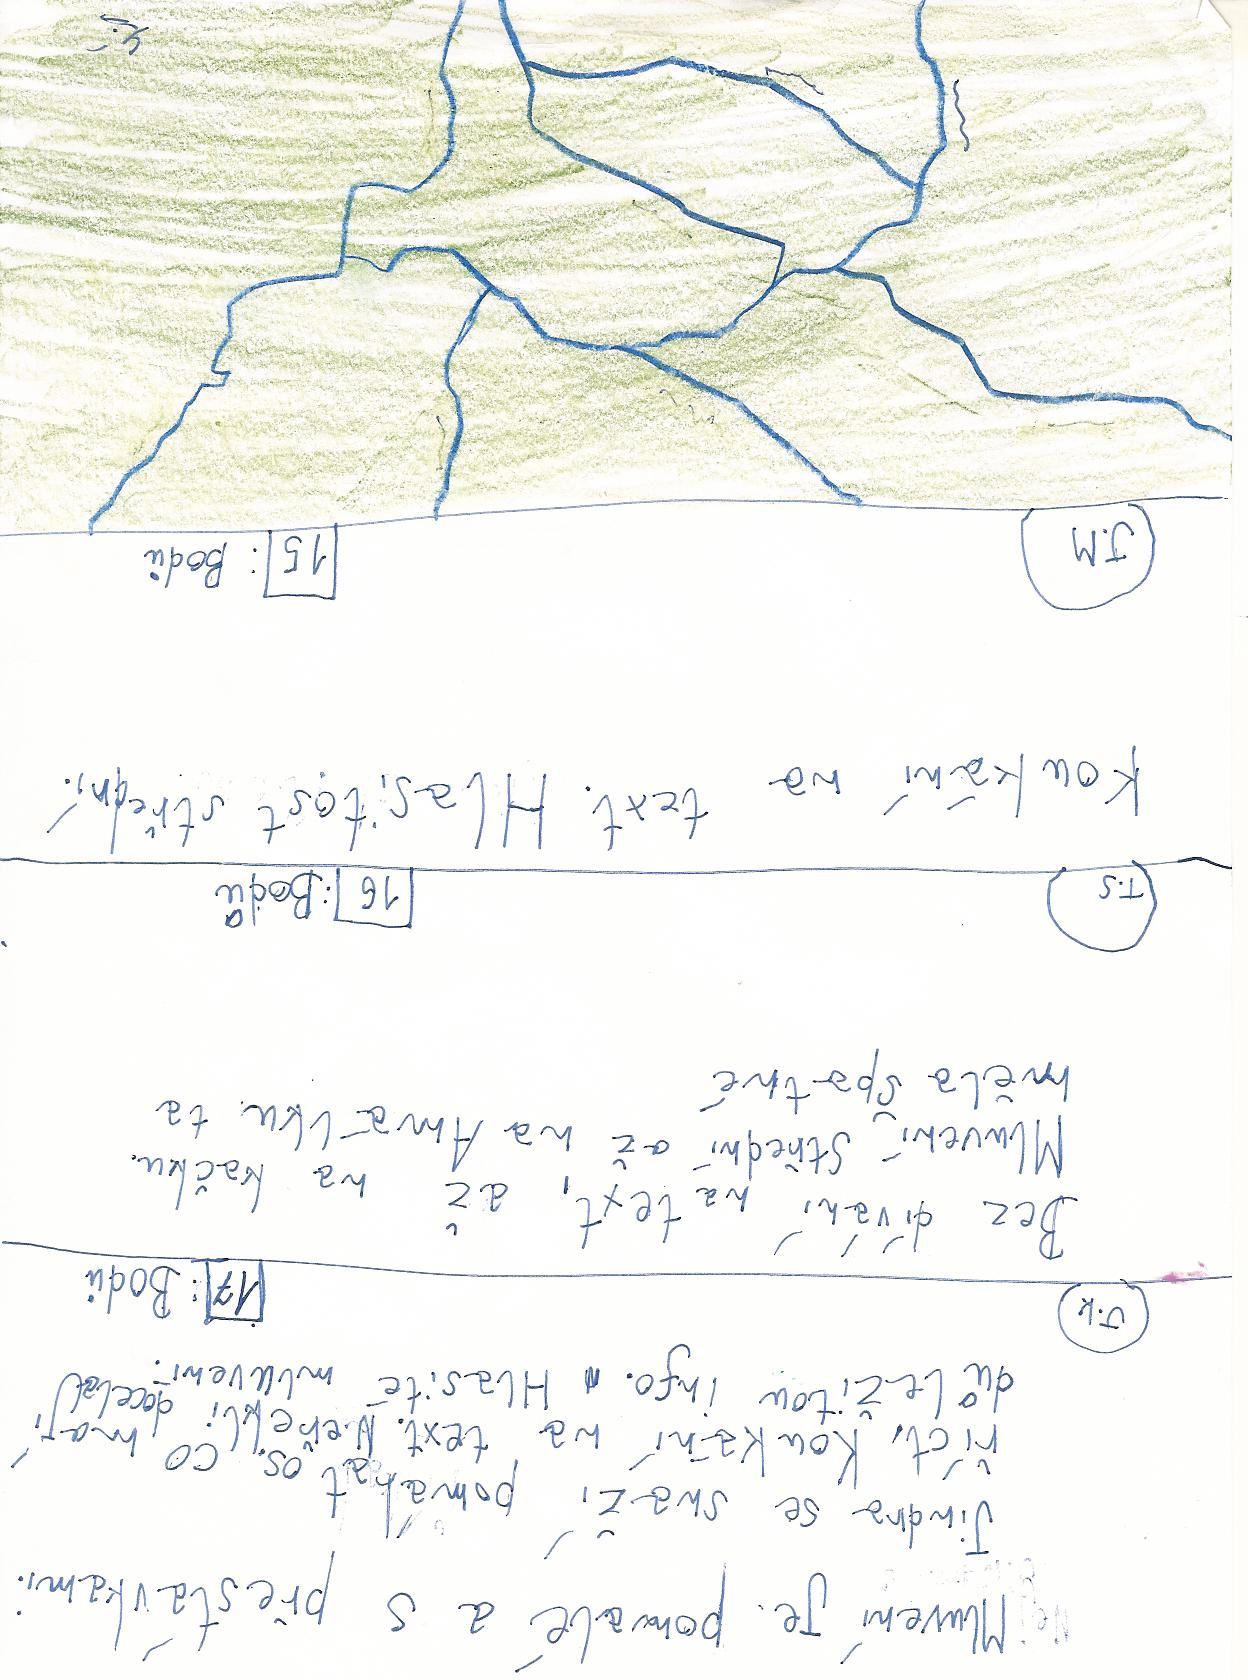 Mluvení je pomalé a s přestávkami.
Jindra se snaží pomahat os. co mají
říct. Koukání na text. Neřekli docela
důležitou info. Hlasité mluvení.
J.K
17 : Bodů
Bez dívání na text, až na kačku.
Mluvení střední až na Amálku. ta
měla špatné
T.S
16 : Bodů
Koukání na text. Hlasitost střední.
J.M
15 : Bodů